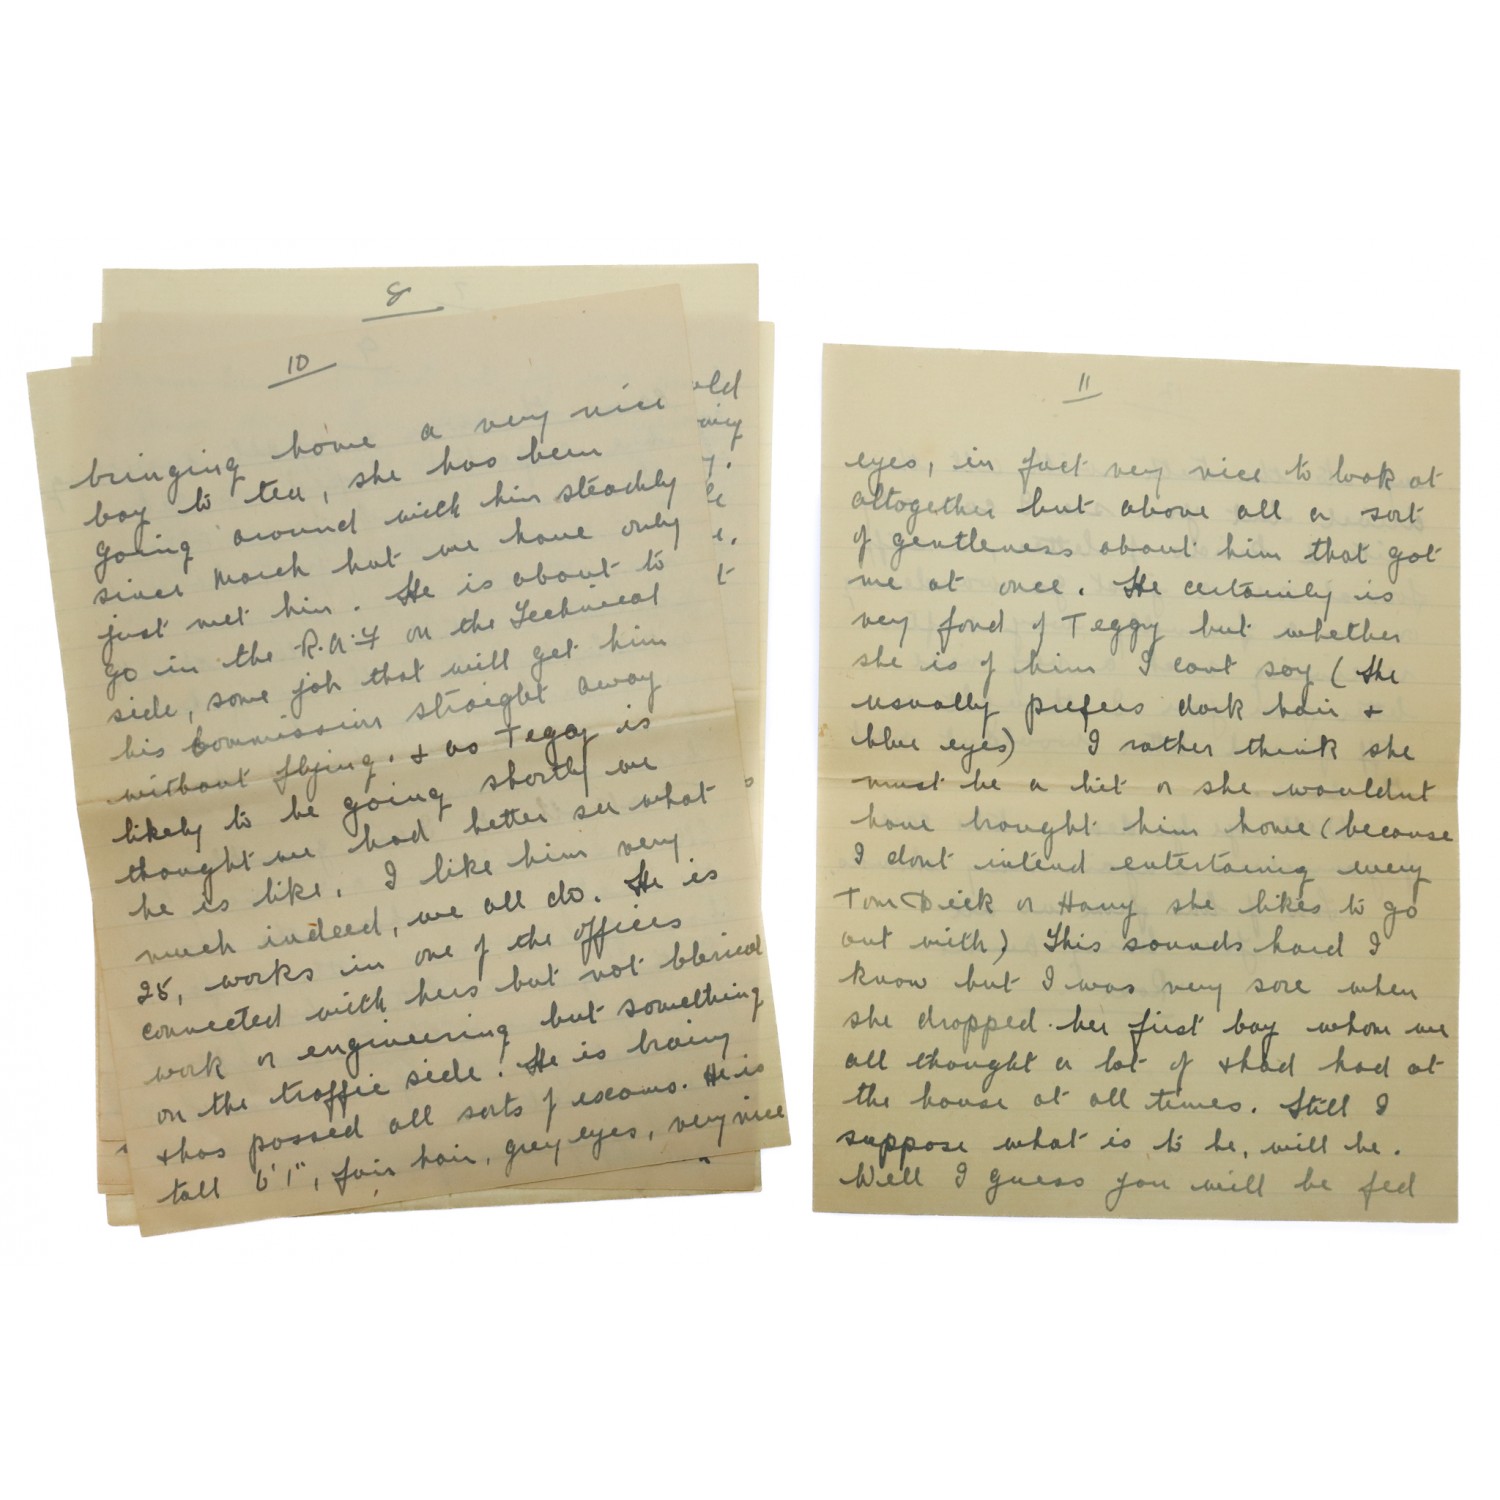 8
10
bringing home a very nice
boy to tea, she has been
going around with him steadily
since March but we have only
just met him. He is about to
go in the R.A.F on the Technical
side, some job that will get him
his Commission straight away
without flying. & as Teggy is
likely to be going shortly we
thought we had better see what
he is like. I like him very
much indeed, we all do. He is
25, works in one of the offices
connected with hers but not clerical
work or engineering but something
on the traffic side. He is brainy
& has passed all sorts of exams. He is
tall 6'1", fair hair, grey eyes, very nice
11
eyes, in fact very nice to look at
altogether but above all a sort
of gentleness about him that got
me at once. He certainly is
very fond of Teggy but whether
she is of him I cant say (She
usually prefers dark hair &
blue eyes) I rather think she
must be a bit or she wouldnt
have brought him home (because
I dont intend entertaining every
Tom Dick or Harry she likes to go
out with) This sounds hard I
know but I was very sore when
she dropped her first boy whom we
all thought a lot of & had had at
the house at all times. Still I
suppose what is to be, will be.
Well I guess you will be fed